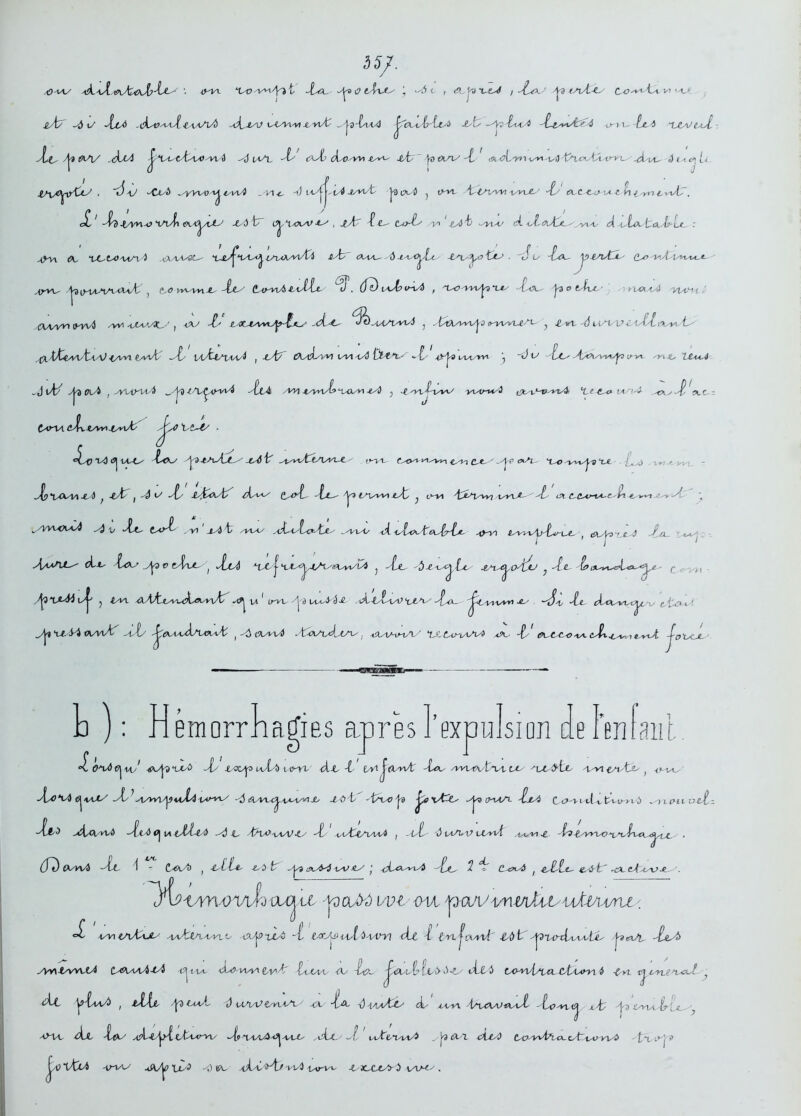 357.
ou dilatable : on rompt la poche ; si, après, la perte continue,
et si les douleurs deviennent plus faibles et plus lentes on les réveil-
le par des frictions sur l'abdomen et par l'administration du seigle
ergoté. Si les moyens ne suffisent pas, on termine l'accouchement.
L'hémorrhagie est grave, et le col n'est ni dilaté ni dilatable :
on a recours aux réfrigérants et au seigle ergoté. Si la perte continue
on pourrait, comme le conseille P. Dubois, rompre la poche, mais nous
aimons mieux, à l'exemple de Thurns, tamponner, en surveillant
attentivement l'utérus, et administrer l'opium ; si le tampon ne réus-
sit pas, nous perçons les membranes, enfin nous avons recours à l'ac-
couchement forcé.
Lorsque la perte est interne on commence par rompre les mem-
branes, et, si l'état du col le permet, on termine l'accouchement ;
mais si le col n'est ni dilaté ni dilatable on emploie, après la rup-
ture de la poche, les réfrigérants, le seigle ergoté, le bandage com-
pressif, en attendant qu'on puisse délivrer la femme. Si le danger était
pressant il faudrait, sans tarder, avoir recours à l'accouchement forcé.
b) : Hémorrhagies après l'expulsion de l'enfant.
Lorsqu'après l'expulsion de l'enfant la matrice reste inerte, ou
lorsque l'impulsion sanguine est trop forte pour les conditions nouvel-
les dans lesquelles se trouve l'utérus, il survient une hémorrhagie.
Dans le 1er cas, elle est passive ; dans le 2e cas, elle est active.
Hémorrhagie passive ou par inertie utérine.
L'inertie utérine après l'expulsion de l'enfant est produite par les
mêmes causes qui donnent lieu à la faiblesse des contractions en général,
de plus, elle peut survenir à la suite d'un travail long et pénible,
ou de la déplétion brusque de l'utérus par des contractions trop
fortes ou après sa distension excessive.